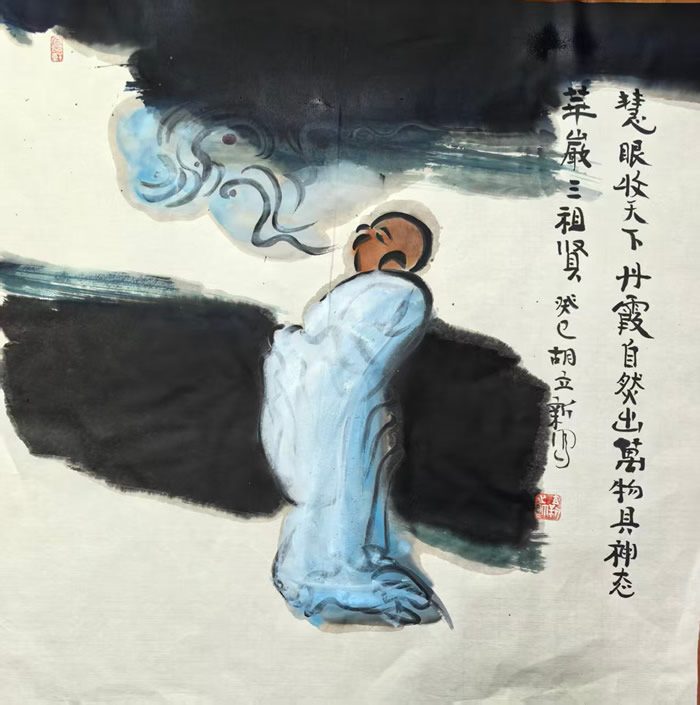 慧眼收天下丹霞自然出萬物具神态
華嚴三祖賢 癸巳胡立新